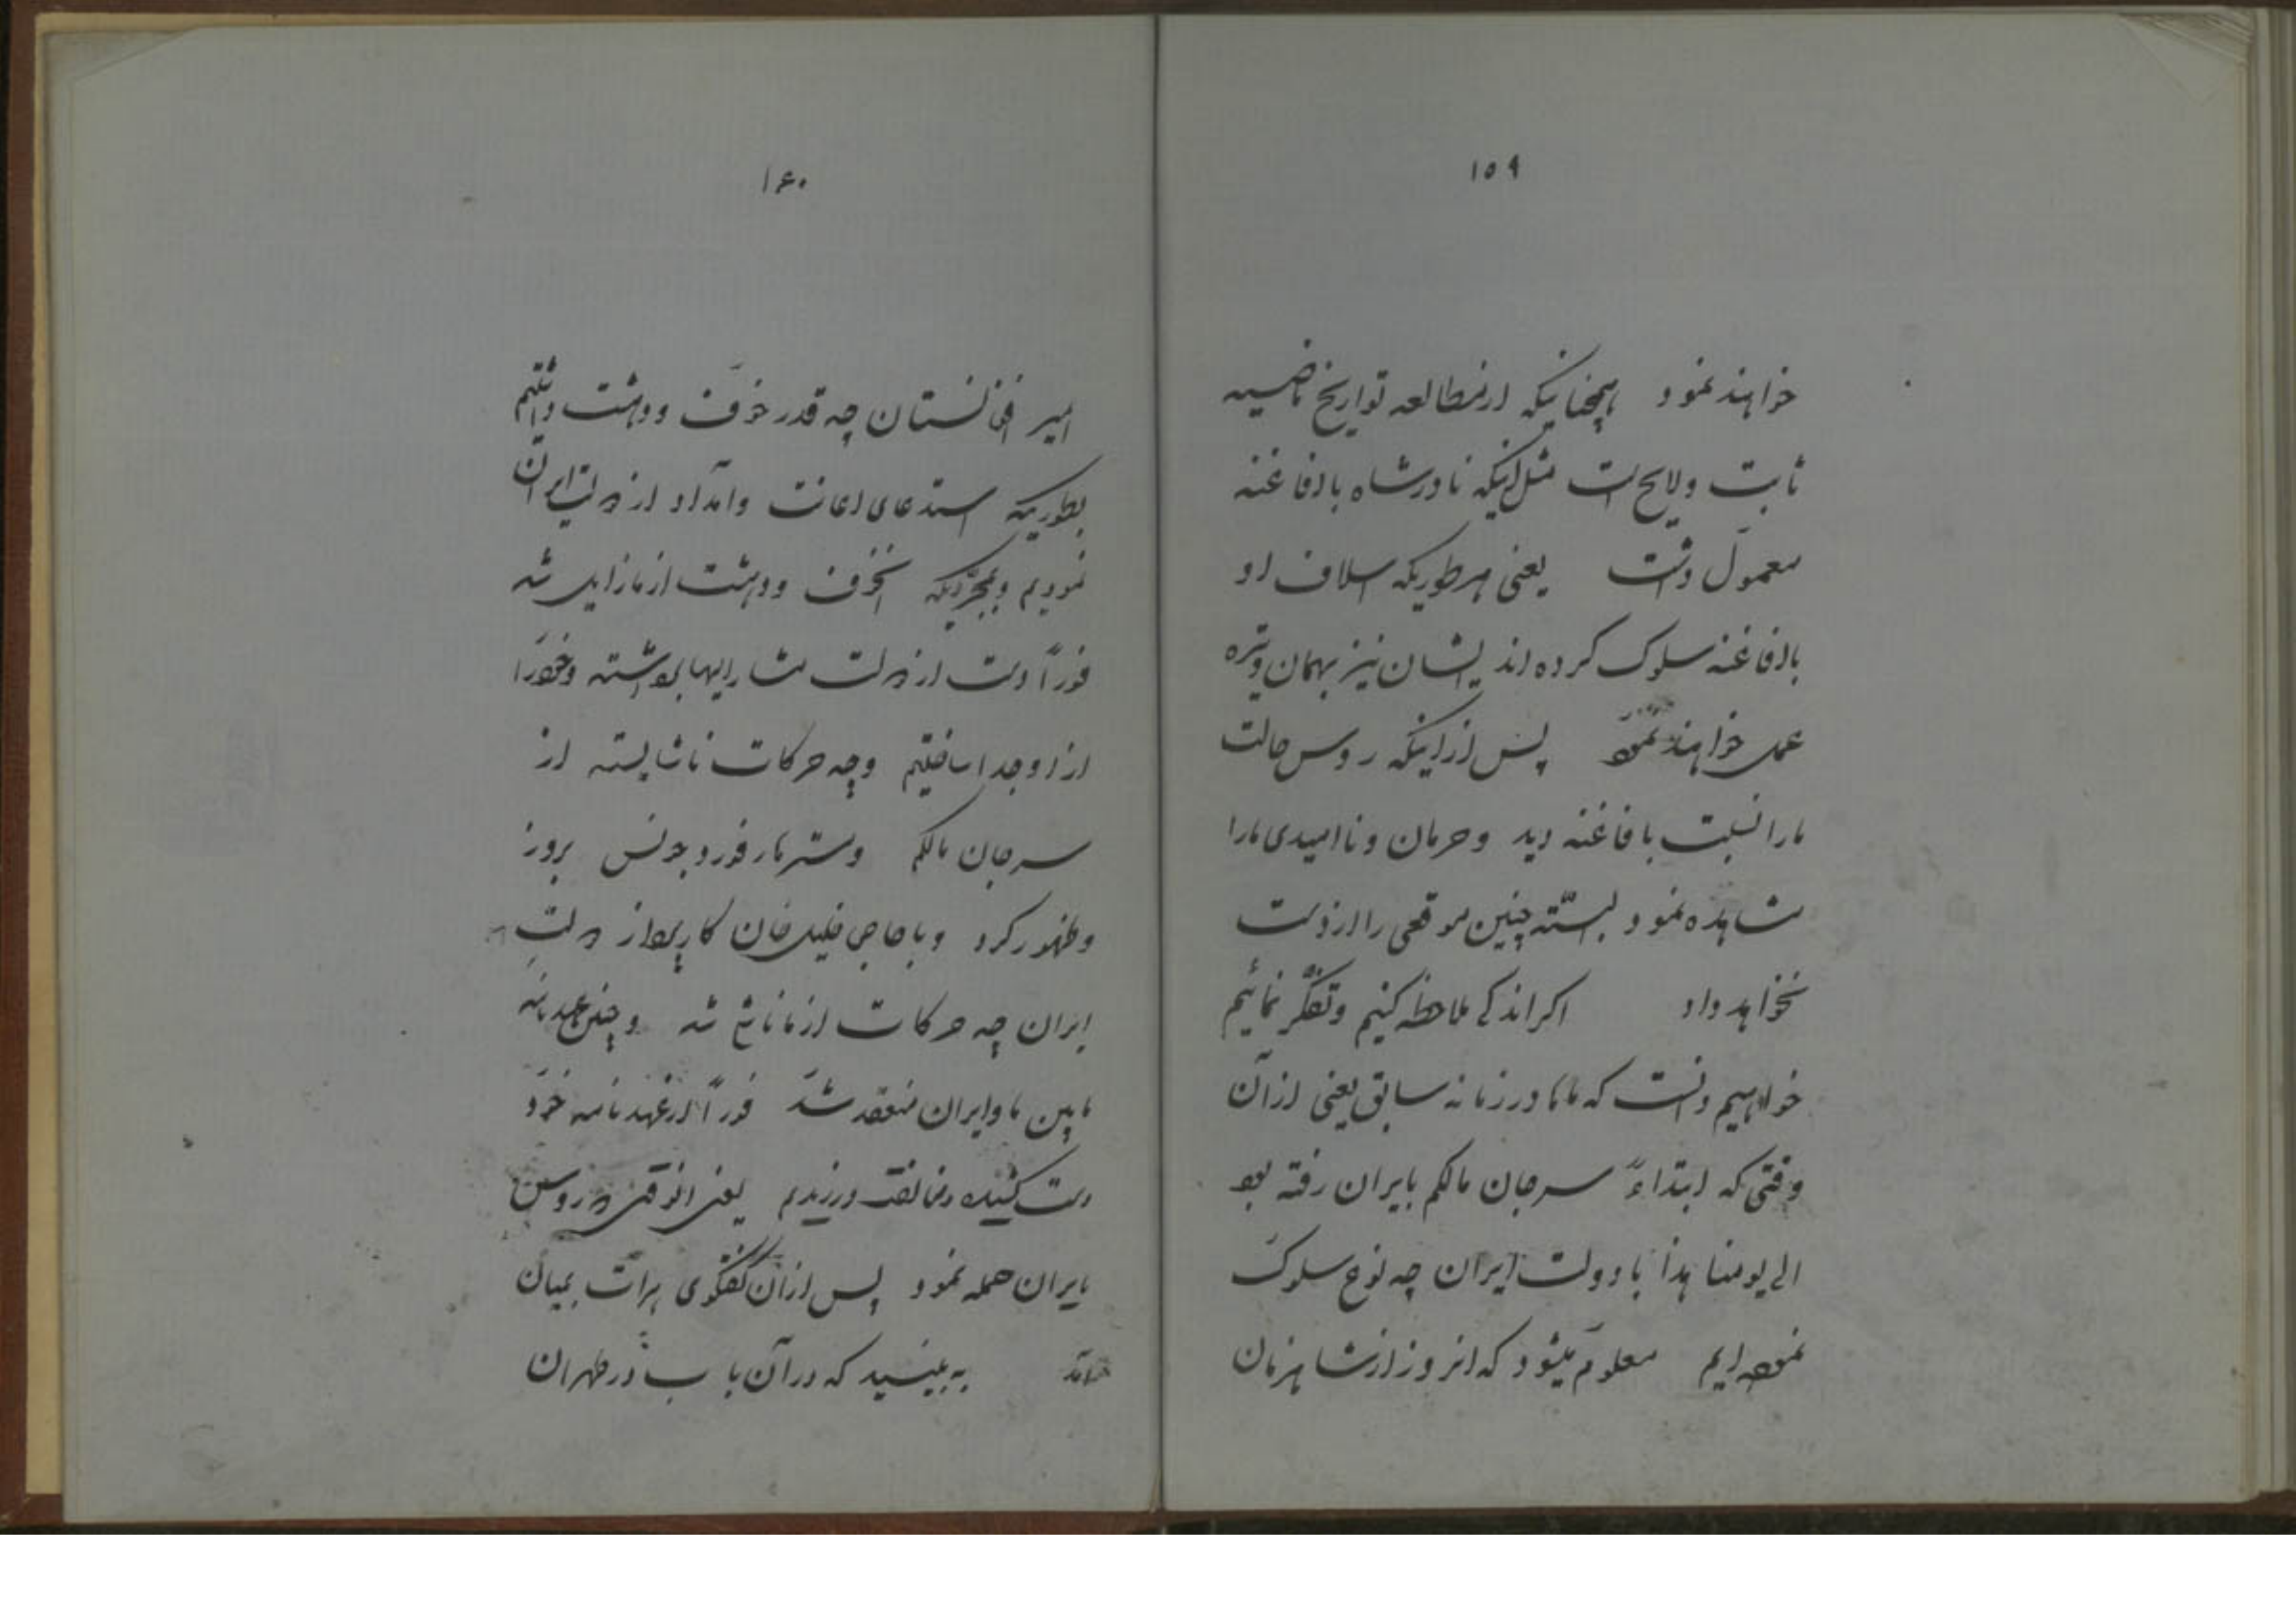 ۱۵۹
خواهند نمود همچنانیکه از مطالعه تواریخ ماضیه
ثابت و لایح است مثل اینکه نادرشاه با افاغنه
معمول داشت یعنی هرطوریکه اسلاف او
با افاغنه سلوک کرده اند ایشان نیز بهمان وتیره
عمل خواهند نمود پس از اینکه روس حالت
ما را نسبت بافاغنه دید و حرمان و ناامیدی ما را
مشاهده نمود البته چنین موقعی را از دست
نخواهد داد اگر اندکی ملاحظه کنیم و تفکر نمائیم
خواهیم دانست که ماها در زمانه سابق یعنی از آن
وقتی که ابتداءً سرجان مالکم بایران رفته بود
الی یومنا هذا با دولت ایران چه نوع سلوک
نموده ایم معلوم میشود که انروز از شاه زمان
۱۶۰
امیر افغانستان چه قدر خوف و وحشت داشتیم
بطوریکه استدعای اعانت و امداد از دولت ایران
نمودیم و بمجردیکه آنخوف و وحشت از ما زایل شد
فوراً دست از دولت مشارالیها برداشته و خود را
از او جدا ساختیم و چه حرکات ناشایسته از
سرجان مالکم و ستر هارفورد جونس بروز
و ظهور کرد و با حاجی خلیل خان کارپرداز دولت
ایران چه حرکات از ما ناشی شد و چنین عهدنامه
مابین ما و ایران منعقد شد فوراً از عهدنامه خود
دست کشیده و مخالفت ورزیدیم یعنی انوقتی که روس
بایران حمله نمود پس از آن گفتگوی هرات بمیان
آمد به بینید که در آن باب در طهران